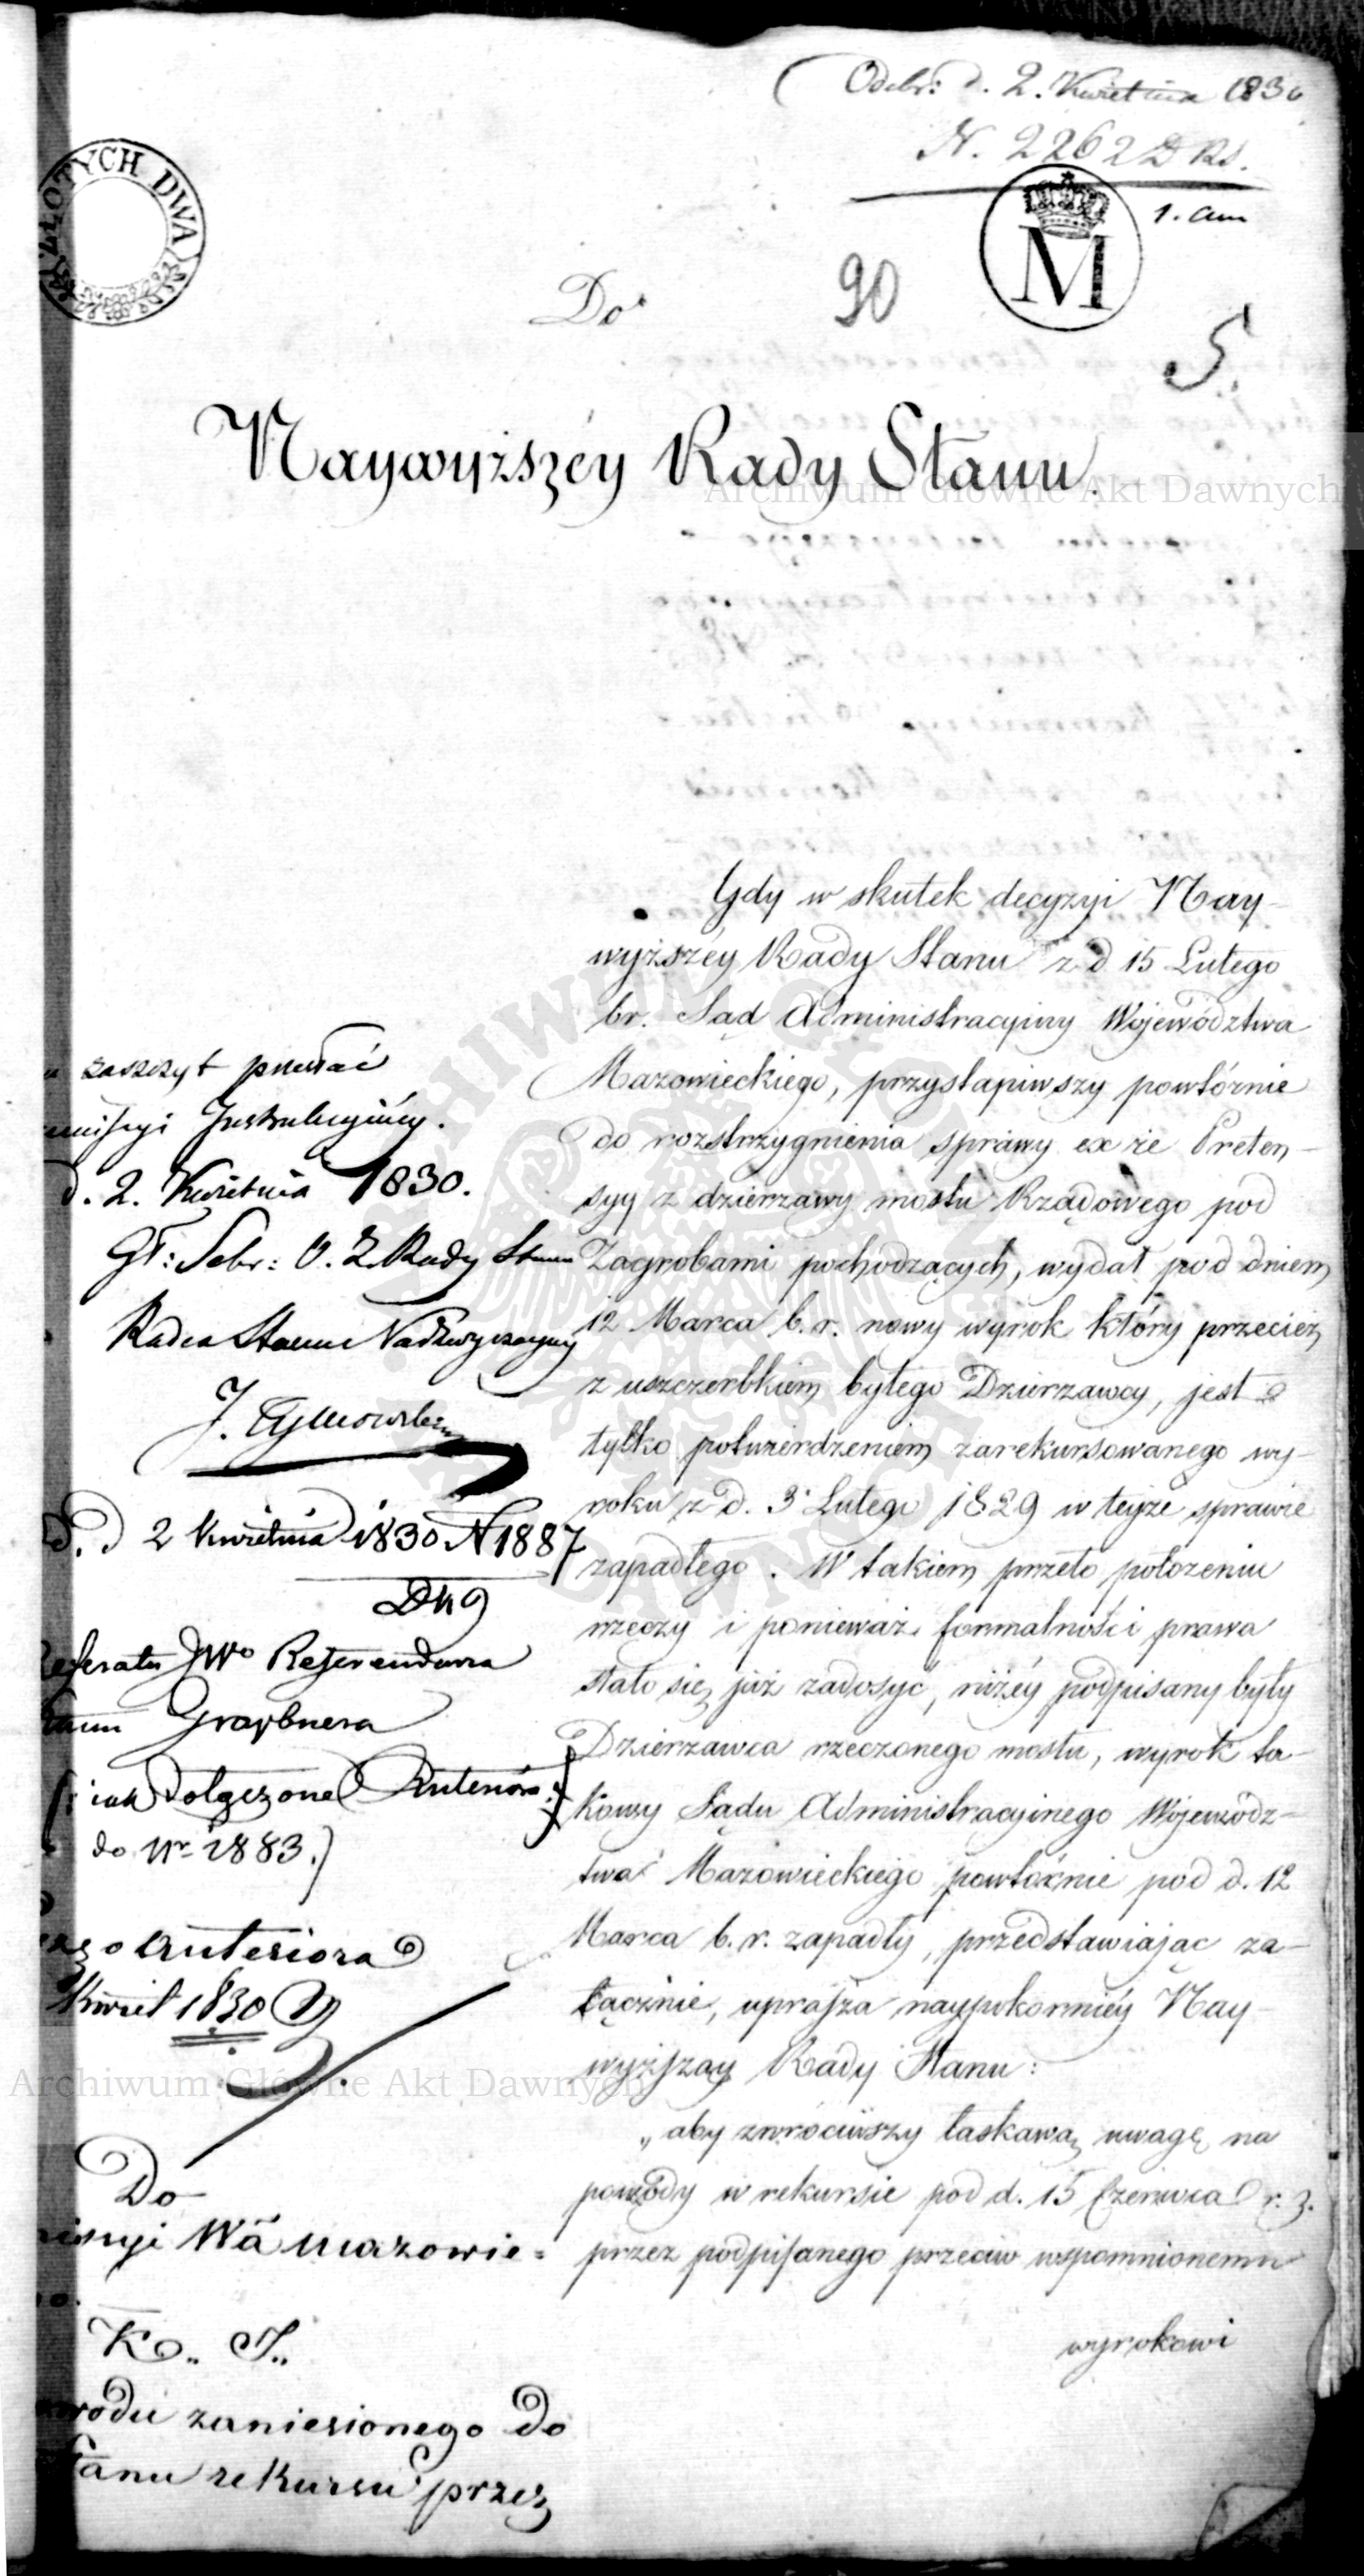 Odebr: d. 2. Kwietnia 1830
N. 2262 D Rs.
1. am
ZŁOTYCH DWA
M
Do
90
5.
Naywyższéy Rady Stanu.
Archiwum Główne Akt Dawnych
Gdy w skutek decyzyi Nay-
wyższéy Rady Stanu z d 15 Lutego
br. Sąd Administracyiny Województwa
Mazowieckiego, przystąpiwszy powtórnie
do rozstrzygnienia sprawy ex re Preten-
syy z dzierżawy mostu Rządowego pod
Zagrobami pochodzących, wydał pod dniem
12 Marca b. r. nowy wyrok który przecież
z uszczerbkiem byłego Dzierżawcy, jest
tylko potwierdzeniem zarekursowanego wy-
roku z d. 3 Lutego 1829 w teyże sprawie
zapadłego. W takiem przeto położeniu
rzeczy i ponieważ formalności prawa
stało się już zadosyć, niżéy podpisany były
Dzierżawca rzeczonego mostu, wyrok ta-
kowy Sądu Administracyinego Wojewódz-
twa Mazowieckiego powtórnie pod d. 12
Marca b. r. zapadły, przedstawiając za-
łącznie, uprasza naypokorniéy Nay-
wyższéy Rady Stanu:
„aby zwróciwszy łaskawą uwagę na
powody w rekursie pod d. 15 Czerwca r. z.
przez podpisanego przeciw wspomnionemu
wyrokowi
zaszczyt przesłać
Instrukcyinéy.
d. 2. Kwietnia 1830.
Gł: Sekr: Rady Stanu
Radca Stanu Nadzwyczayny
J. Tymowski
D. d 2 Kwietnia 1830 N 1887
Referatu JWo Referendarza
Stanu Graybnera
(: iak dołączone Anteriora :)
do Nr 1883.)
Anteriora
Kwiet 1830
Archiwum Główne Akt Dawnych
Do
misyi Wa Mazowie=
K.. I..
zaniesionego do
Stanu rekursu przez